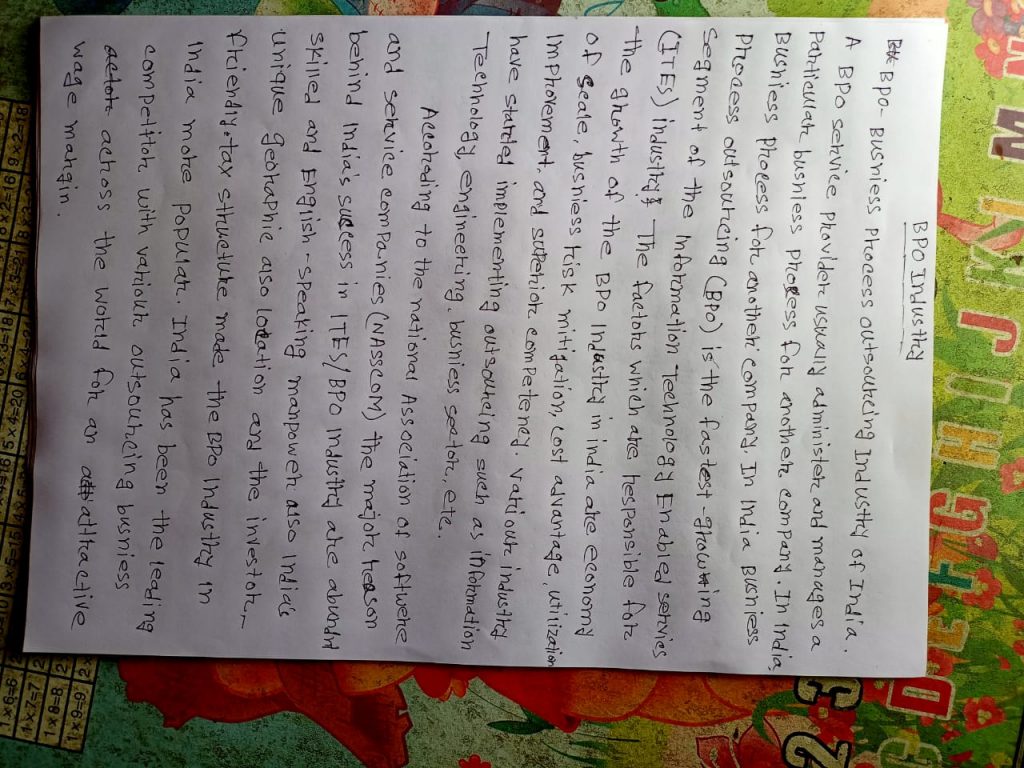 BPO Industry
BPO- Busniess Process outsourcing Industry of India.
A BPO service Provider usually administer and manages a
Particular busniess process for another company. In India,
Busniess Process for another company. In India Busniess
Process outsourcing (BPO) is the fastest-growing
segment of the Information Technology Enabled servies
(ITES) industry. The factors which are responsible for
the growth of the BPO Industry in india are economy
of scale, busniess risk mitigation, cost advantage, utilization
improvement, and superior competency. Various industry
have started implementing outsourcing such as information
Technology, engineering, busniess sector, etc.
According to the national Association of software
and service companies (NASSCOM) the major reason
behind India's success in ITES/BPO industry are abundnt
skilled and English-speaking manpower also India's
unique geohraphic also location and the investor-
friendly-tax structure made the BPO Industry in
India more popular. India has been the leading
competitor with various outsourcing busniess
across the world for an attractive
wage margin.
D E F G H I J K L M N
2 3
1×6=6
1×7=7
1×8=8
1×9=9